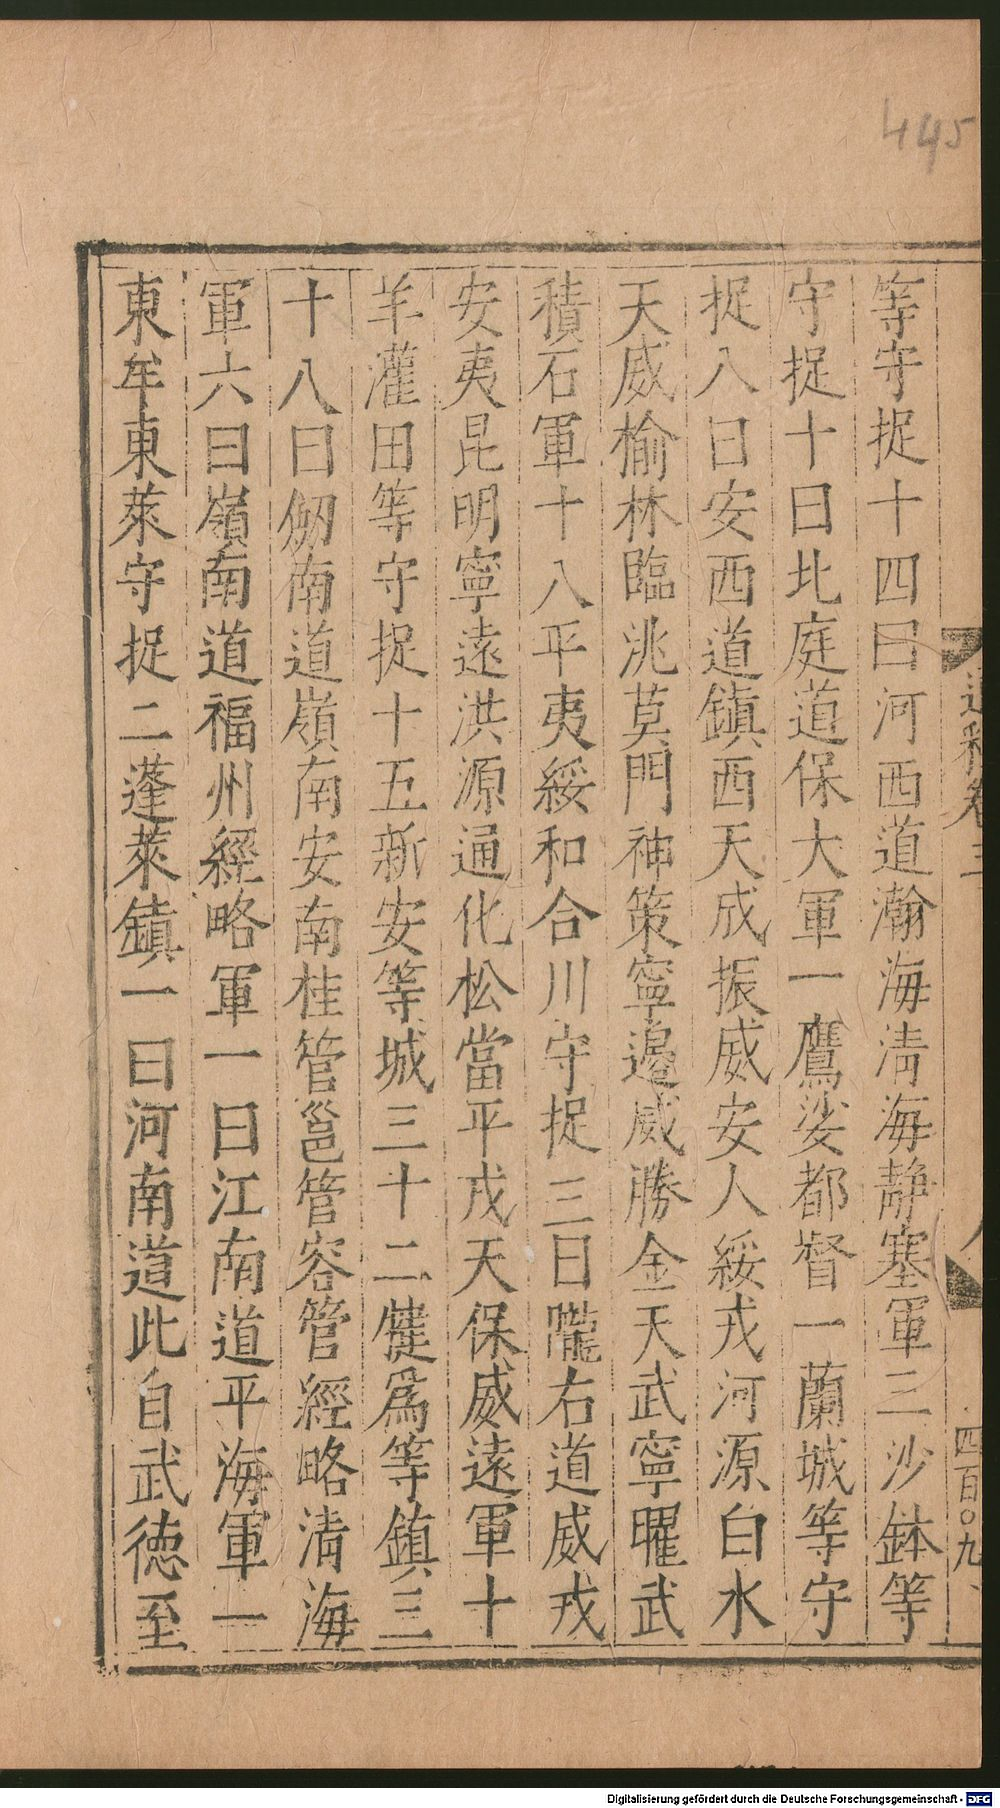 445
等守捉十四曰河西道瀚海淸海靜塞軍三沙鉢等
守捉十曰北庭道保大軍一鷹娑都督一蘭城等守
捉八曰安西道鎮西天成振威安人綏戎河源白水
天威榆林臨洮莫門神策寧邊威勝金天武寧曜武
積石軍十八平夷綏和合川守捉三曰隴右道威戎
安夷昆明寧遠洪源通化松當平戎天保威遠軍十
羊灌田等守捉十五新安等城三十二犍爲等鎮三
十八曰劒南道嶺南安南桂管邕管容管經略清海
軍六曰嶺南道福州經略軍一曰江南道平海軍一
東牟東萊守捉二蓬萊鎮一曰河南道此自武德至
四百〇九
Digitalisierung gefördert durch die Deutsche Forschungsgemeinschaft - DFG